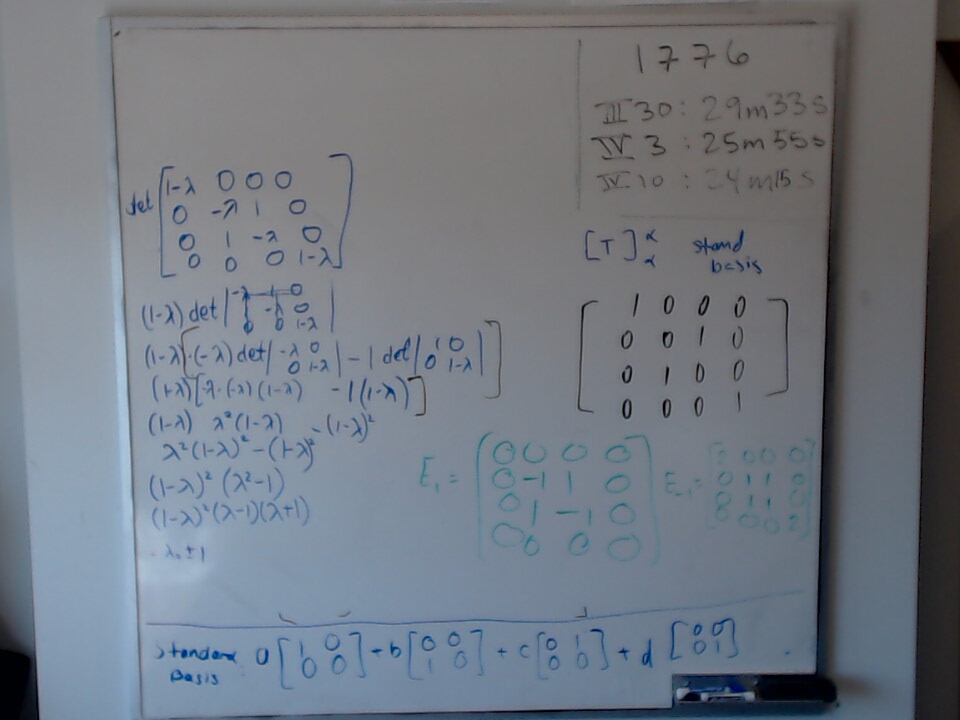 1776
III 30 : 29m33s
IV 3 : 25m55s
IV 10 : 24m15s
det [1-λ 0 0 0
0 -λ 1 0
0 1 -λ 0
0 0 0 1-λ]
(1-λ) det | -λ 1 0
1 -λ 0
0 0 1-λ |
(1-λ)[(-λ) det | -λ 0
0 1-λ | - 1 det | 1 0
0 1-λ | ]
(1-λ)[-λ·(-λ)(1-λ) - 1(1-λ)]
(1-λ) λ²(1-λ) - (1-λ)²
λ²(1-λ)² - (1-λ)²
(1-λ)² (λ²-1)
(1-λ)² (λ-1)(λ+1)
λ = ±1
[T]α α stand
basis
[1 0 0 0
0 0 1 0
0 1 0 0
0 0 0 1]
E₁ = [0 0 0 0
0 -1 1 0
0 1 -1 0
0 0 0 0]
E₋₁ = [2 0 0 0
0 1 1 0
0 1 1 0
0 0 0 2]
Standard
Basis
a [1 0
0 0] + b [0 0
1 0] + c [0 1
0 0] + d [0 0
0 1]